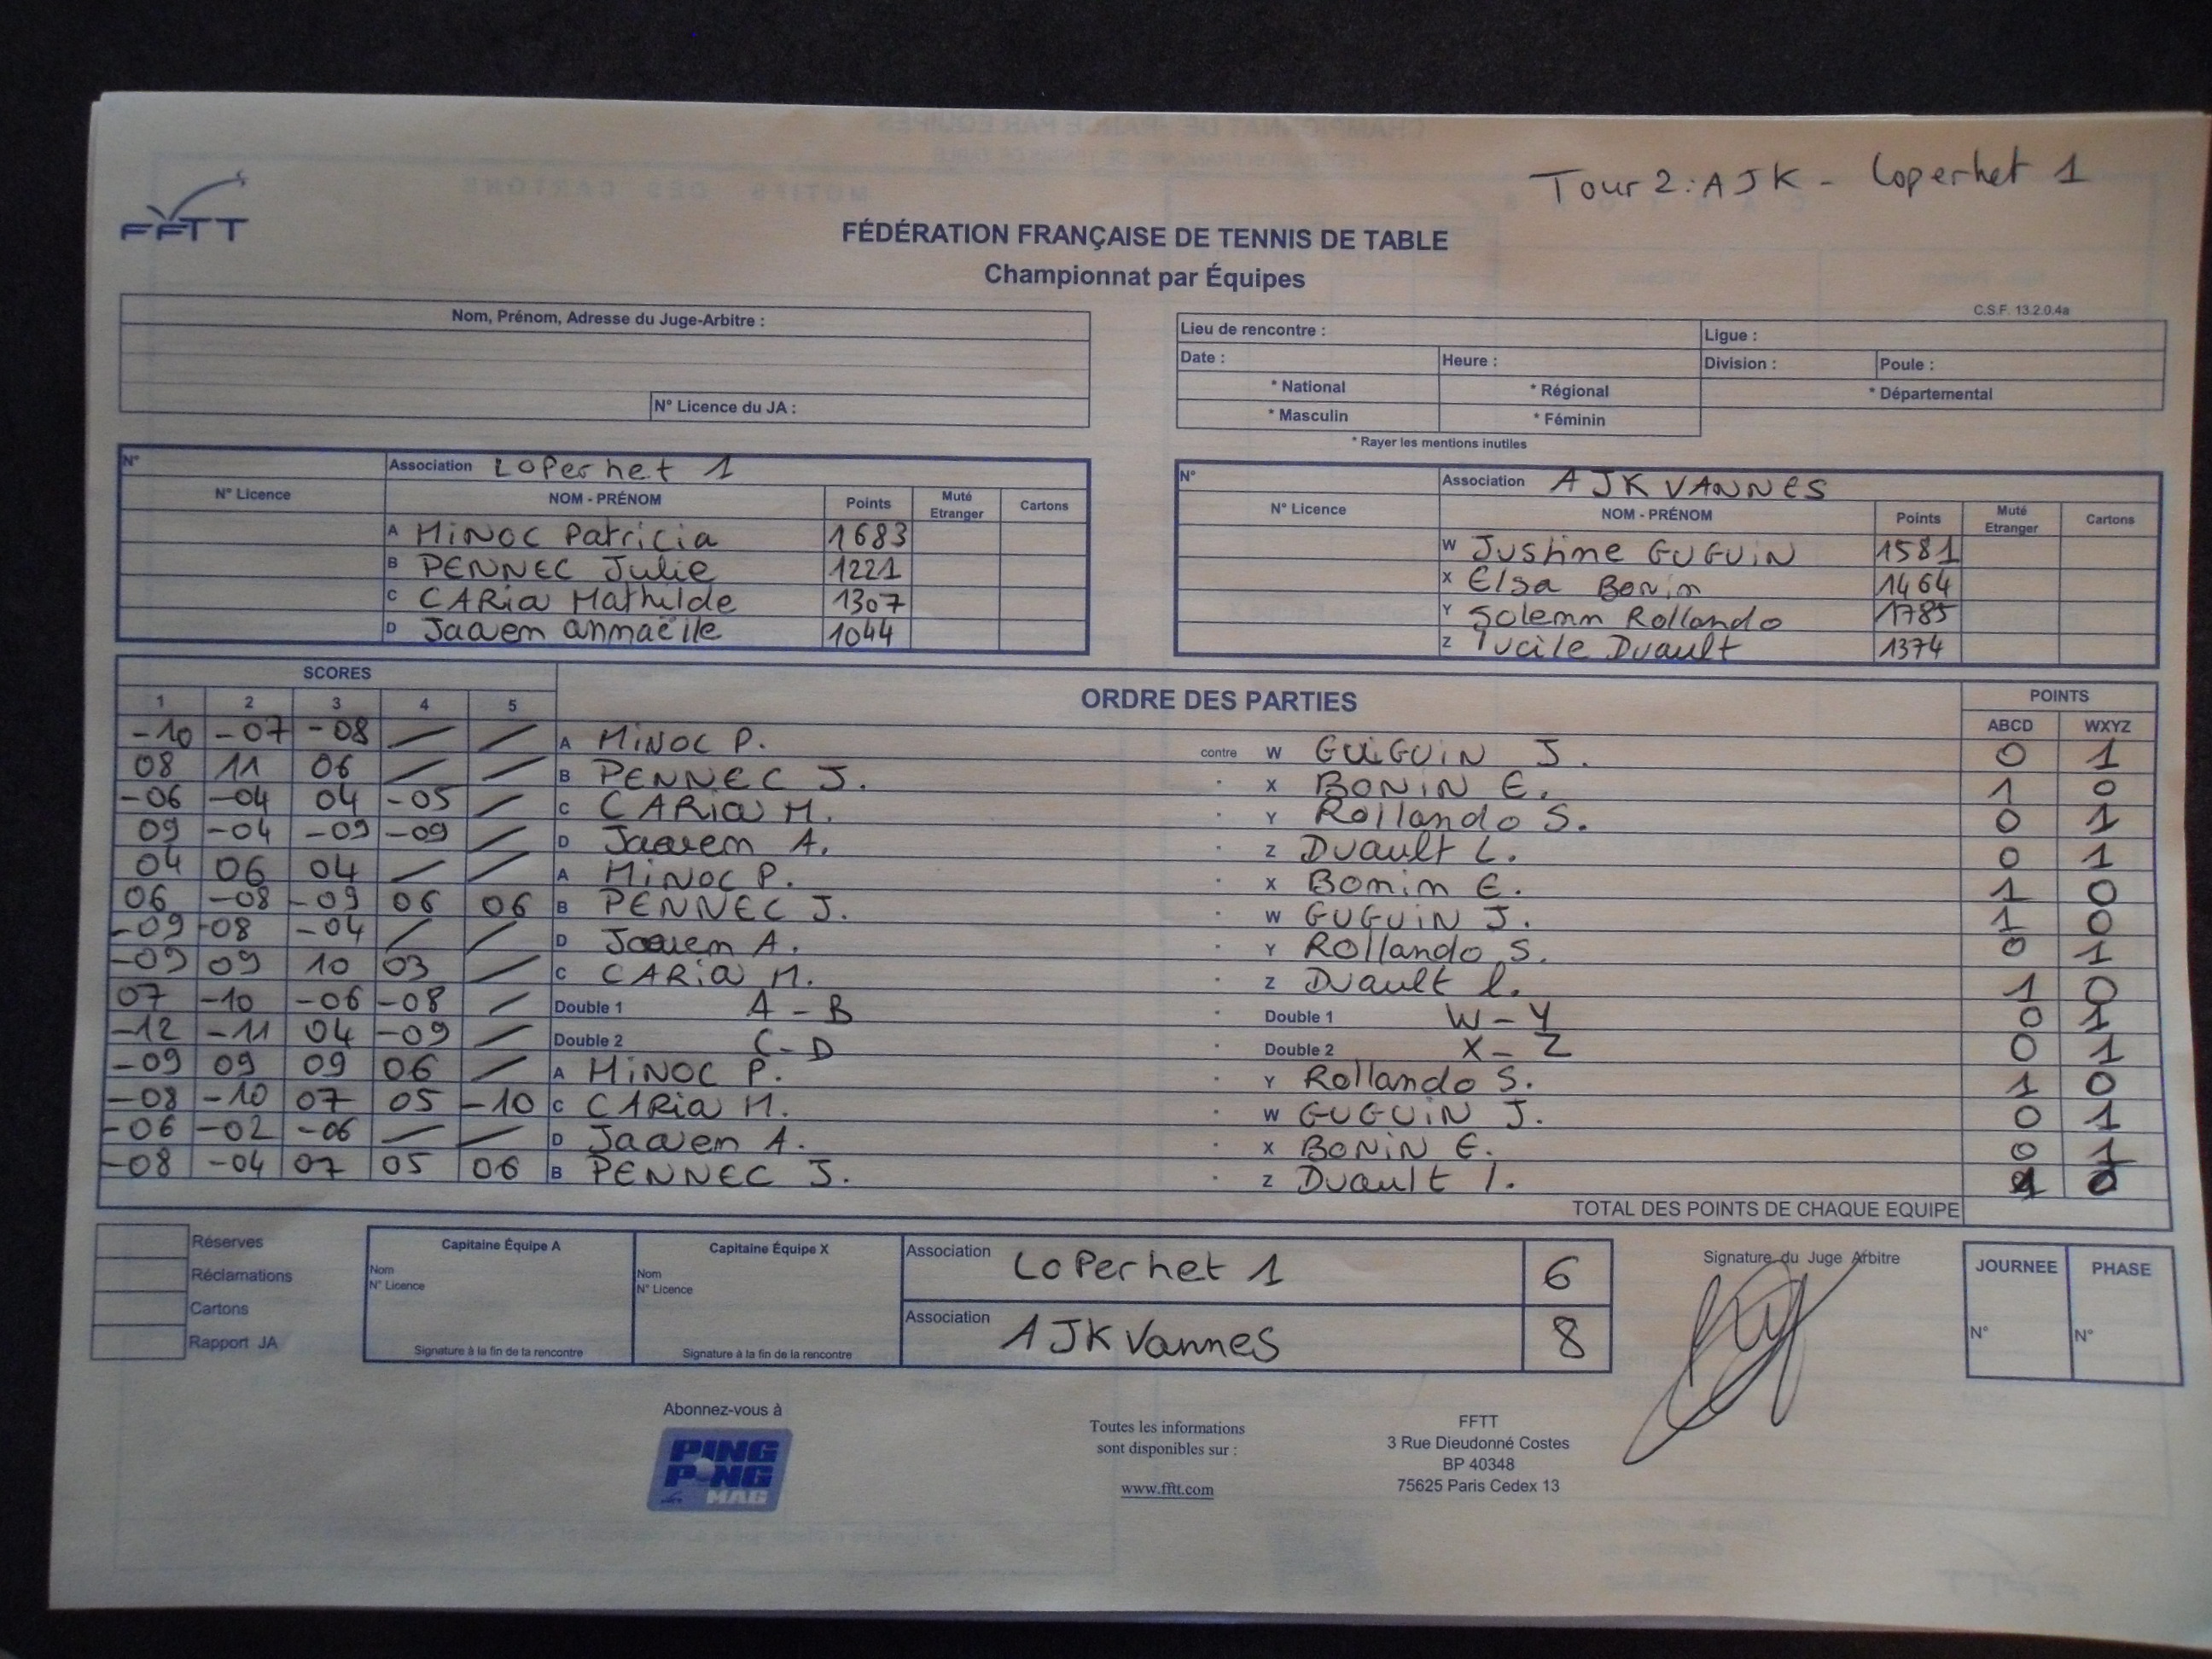 Tour 2 : AJK - Loperhet 1
FFTT
FÉDÉRATION FRANÇAISE DE TENNIS DE TABLE
Championnat par Équipes
C.S.F. 13.2.0.4a
Nom, Prénom, Adresse du Juge-Arbitre :
N° Licence du JA :
Lieu de rencontre : Ligue :
Date : Heure : Division : Poule :
* National * Régional * Départemental
* Masculin * Féminin
* Rayer les mentions inutiles
N° Association LoPerhet 1
N° Licence NOM - PRÉNOM Points Muté Etranger Cartons
A MiNOC Patricia 1683
B PENNEC Julie 1221
C CARia Mathilde 1307
D Jaouen annaëlle 1044
N° Association AJK VANNES
N° Licence NOM - PRÉNOM Points Muté Etranger Cartons
W Justine GUGUiN 1581
X Elsa Bonin 1464
Y Solenn Rollando 1785
Z lucile Duault 1374
SCORES ORDRE DES PARTIES POINTS
1 2 3 4 5 ABCD WXYZ
-10 -07 -08 / / A MiNOC P. contre W GUiGUiN J. 0 1
08 11 06 / / B PENNEC J. X BONiN E. 1 0
-06 -04 04 -05 / C CARia M. Y Rollando S. 0 1
09 -04 -09 -09 / D Jaouen A. Z Duault L. 0 1
04 06 04 / / A MiNOC P. X Bonin E. 1 0
06 -08 -09 06 06 B PENNEC J. W GUGUiN J. 1 0
-09 -08 -04 / / D Jaouen A. Y Rollando S. 0 1
-09 09 10 03 / C CARia M. Z Duault l. 1 0
07 -10 -06 -08 / Double 1 A - B Double 1 W - Y 0 1
-12 -11 04 -09 / Double 2 C - D Double 2 X - Z 0 1
-09 09 09 06 / A MiNOC P. Y Rollando S. 1 0
-08 -10 07 05 -10 C CARia M. W GUGUiN J. 0 1
-06 -02 -06 / / D Jaouen A. X BONiN E. 0 1
-08 -04 07 05 06 B PENNEC J. Z Duault l. 1 0
TOTAL DES POINTS DE CHAQUE EQUIPE
Réserves
Réclamations
Cartons
Rapport JA
Capitaine Équipe A
Nom
N° Licence
Signature à la fin de la rencontre
Capitaine Équipe X
Nom
N° Licence
Signature à la fin de la rencontre
Association LoPerhet 1 6
Association AJK Vannes 8
Signature du Juge Arbitre
JOURNEE PHASE
N° N°
Abonnez-vous à
PING PONG MAG
Toutes les informations
sont disponibles sur :
www.fftt.com
FFTT
3 Rue Dieudonné Costes
BP 40348
75625 Paris Cedex 13